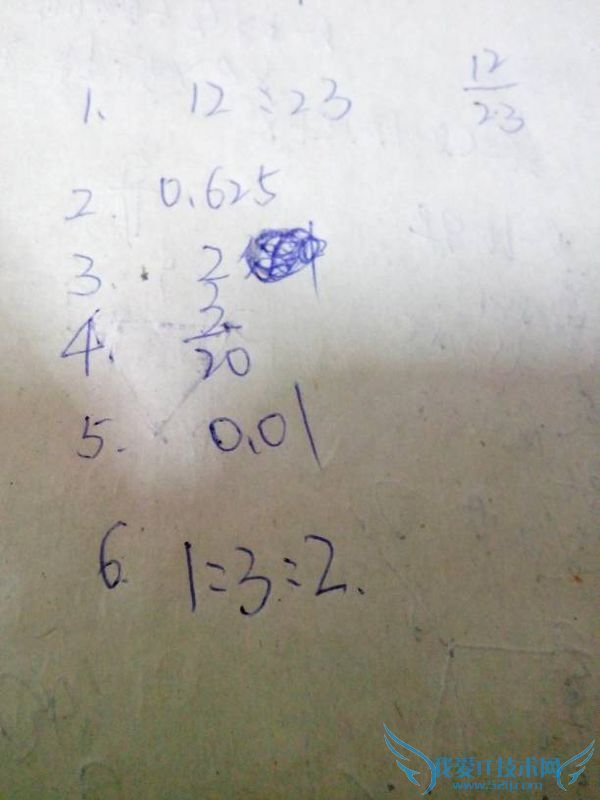 1. 12:23 12/23
2. 0.625
3. 2
4. 3/20
5. 0.01
6. 1:3:2.
我爱IT技术网
www.52ij.com